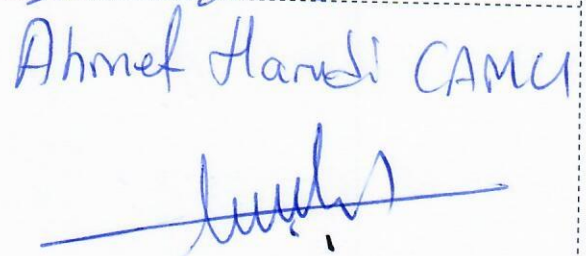 Ahmet Hamdi CAMCI